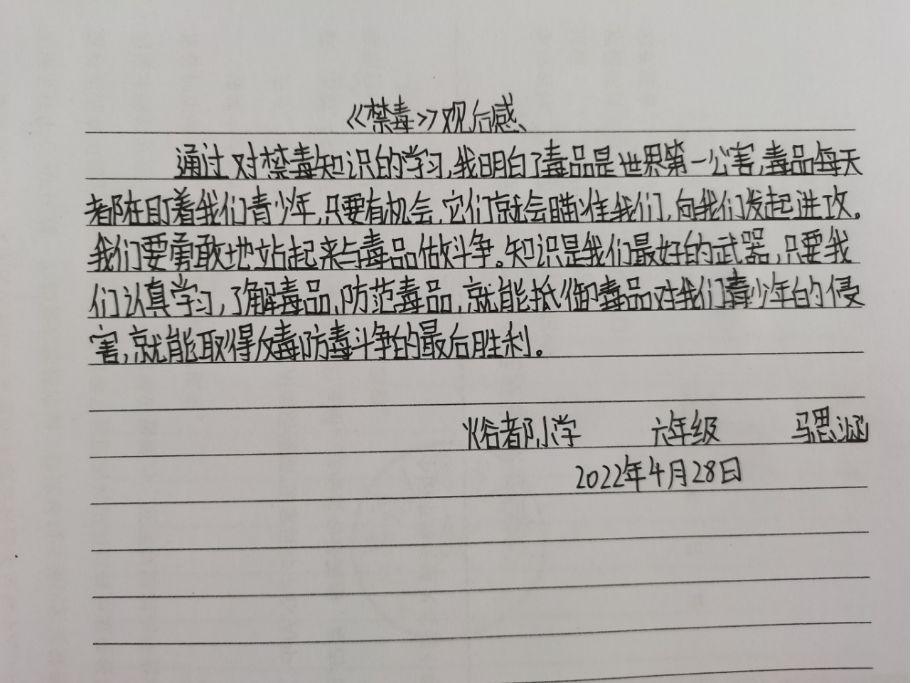 《禁毒》观后感
通过对禁毒知识的学习,我明白了毒品是世界第一公害,毒品每天
都在盯着我们青少年,只要有机会,它们就会瞄准我们,向我们发起进攻。
我们要勇敢地站起来与毒品做斗争。知识是我们最好的武器,只要我
们认真学习,了解毒品,防范毒品,就能抵御毒品对我们青少年的侵
害,就能取得反毒防毒斗争的最后胜利。
峪都小学 六年级 马思涵
2022年4月28日